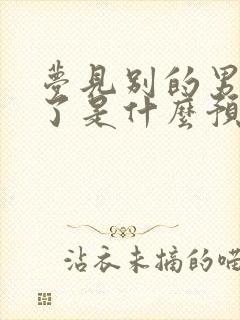 夢見別的男
了是什麼預
沾衣未摘的喵